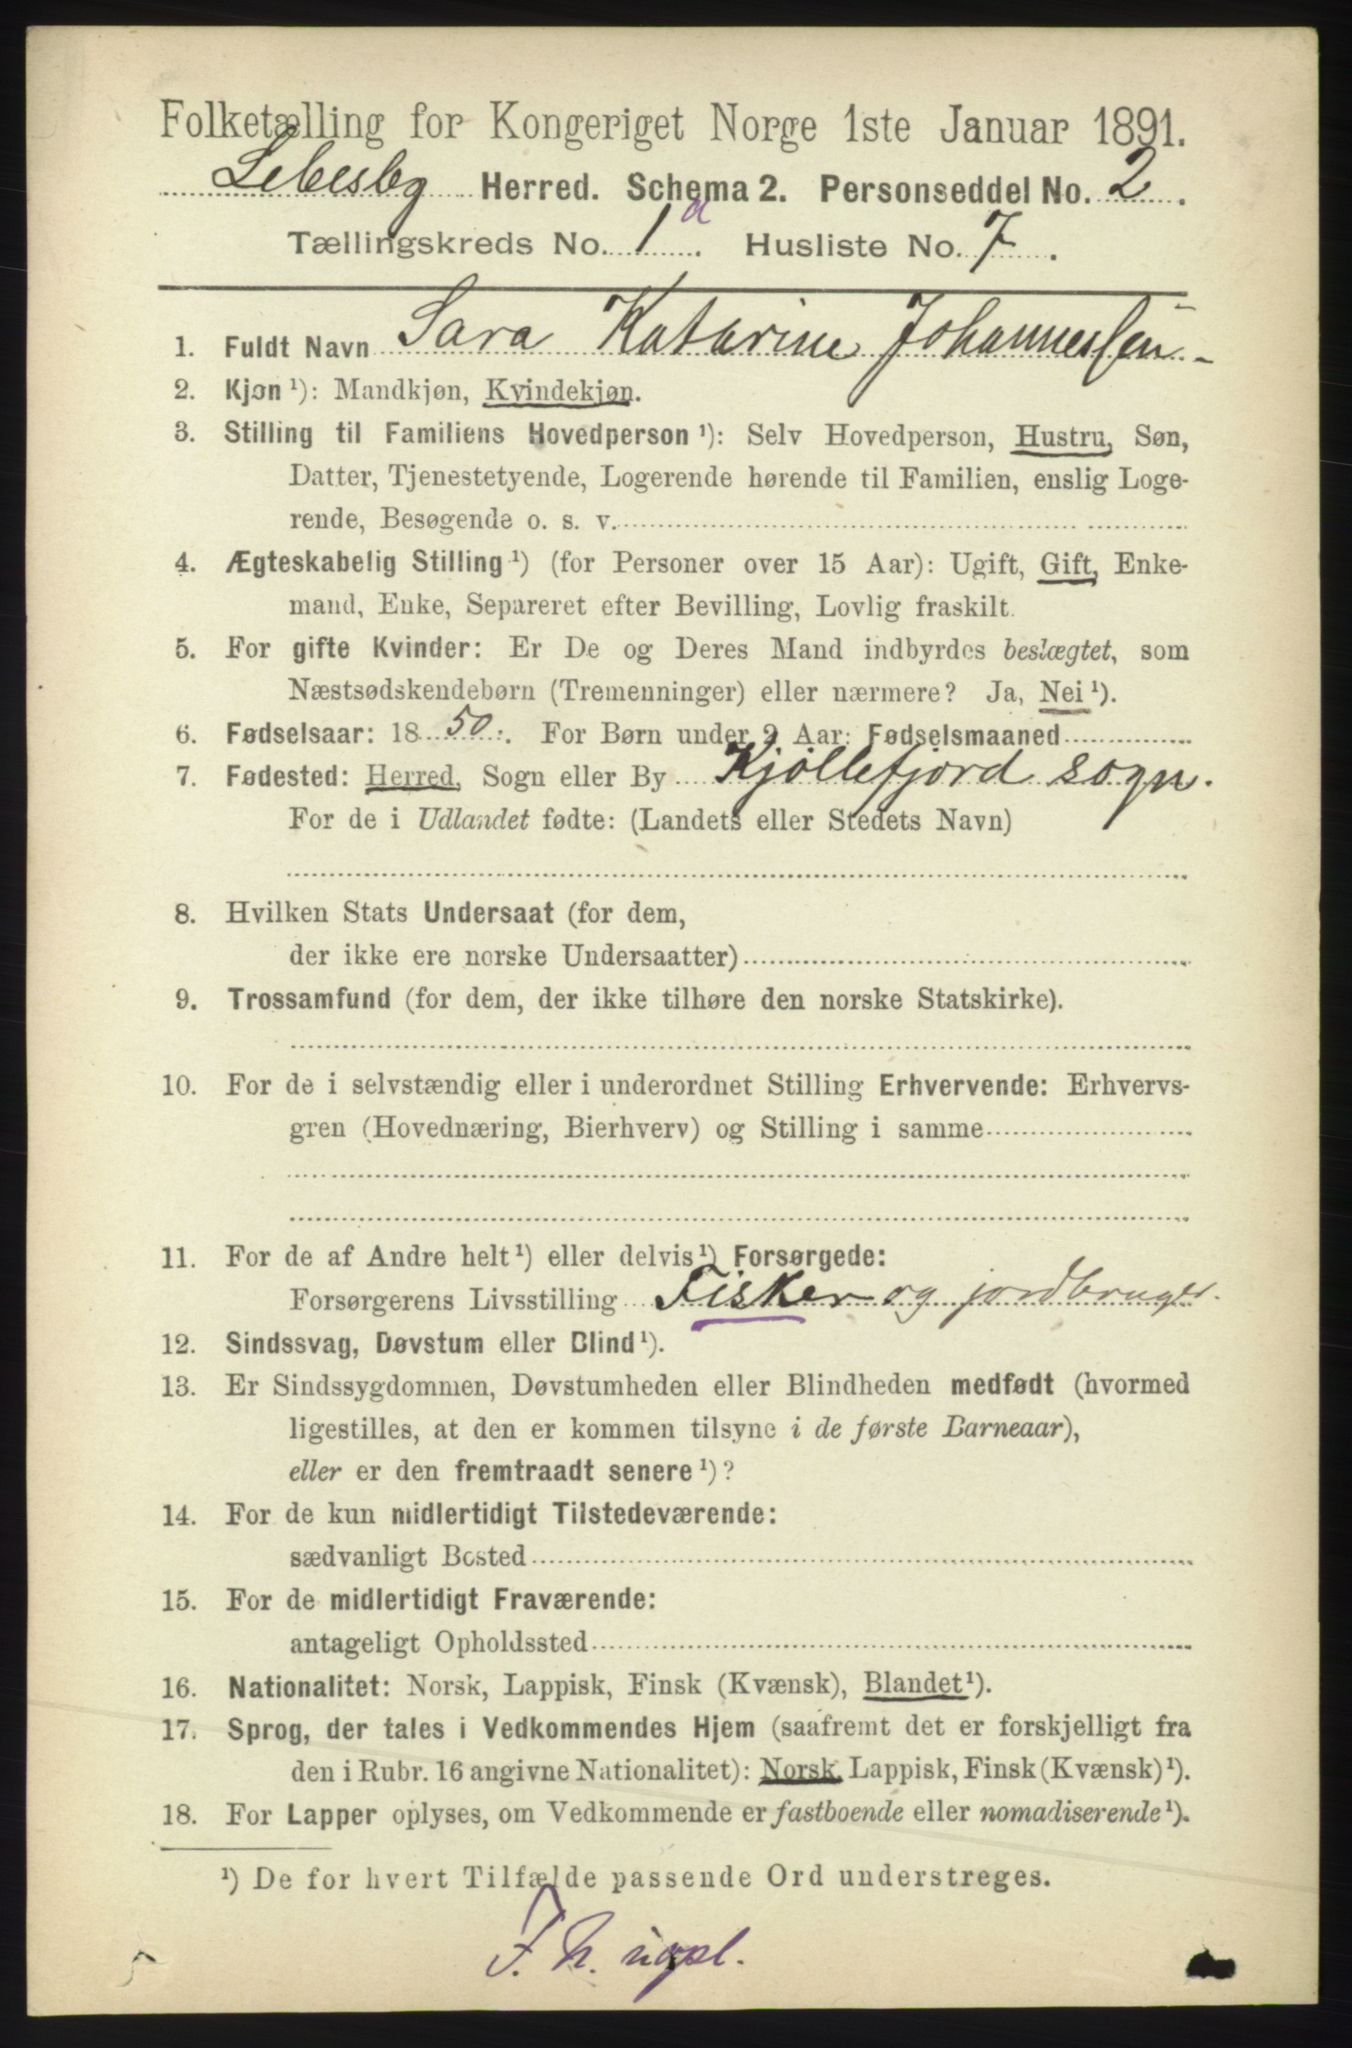 Folketælling for Kongeriget Norge 1ste Januar 1891.
Lebesby Herred. Schema 2. Personseddel No. 2.
Tællingskreds No. 1a. Husliste No. 7.
1. Fuldt Navn Sara Katarine Johannessen
2. Kjøn ¹): Mandkjøn, Kvindekjøn.
3. Stilling til Familiens Hovedperson ¹): Selv Hovedperson, Hustru, Søn,
Datter, Tjenestetyende, Logerende hørende til Familien, enslig Loge-
rende, Besøgende o. s. v.
4. Ægteskabelig Stilling ¹) (for Personer over 15 Aar): Ugift, Gift, Enke-
mand, Enke, Separeret efter Bevilling, Lovlig fraskilt.
5. For gifte Kvinder: Er De og Deres Mand indbyrdes beslægtet, som
Næstsødskendebørn (Tremenninger) eller nærmere? Ja, Nei ¹).
6. Fødselsaar: 1850. For Børn under 2 Aar: Fødselsmaaned
7. Fødested: Herred, Sogn eller By Kjøllefjord sogn.
For de i Udlandet fødte: (Landets eller Stedets Navn)
8. Hvilken Stats Undersaat (for dem,
der ikke ere norske Undersaatter)
9. Trossamfund (for dem, der ikke tilhøre den norske Statskirke).
10. For de i selvstændig eller i underordnet Stilling Erhvervende: Erhvervs-
gren (Hovednæring, Bierhverv) og Stilling i samme
11. For de af Andre helt ¹) eller delvis ¹) Forsørgede:
Forsørgerens Livsstilling Fisker og jordbruger.
12. Sindssvag, Døvstum eller Blind ¹).
13. Er Sindssygdommen, Døvstumheden eller Blindheden medfødt (hvormed
ligestilles, at den er kommen tilsyne i de første Barneaar),
eller er den fremtraadt senere ¹)?
14. For de kun midlertidigt Tilstedeværende:
sædvanligt Bosted
15. For de midlertidigt Fraværende:
antageligt Opholdssted
16. Nationalitet: Norsk, Lappisk, Finsk (Kvænsk), Blandet ¹).
17. Sprog, der tales i Vedkommendes Hjem (saafremt det er forskjelligt fra
den i Rubr. 16 angivne Nationalitet): Norsk, Lappisk, Finsk (Kvænsk) ¹).
18. For Lapper oplyses, om Vedkommende er fastboende eller nomadiserende ¹).
¹) De for hvert Tilfælde passende Ord understreges.
F. N.